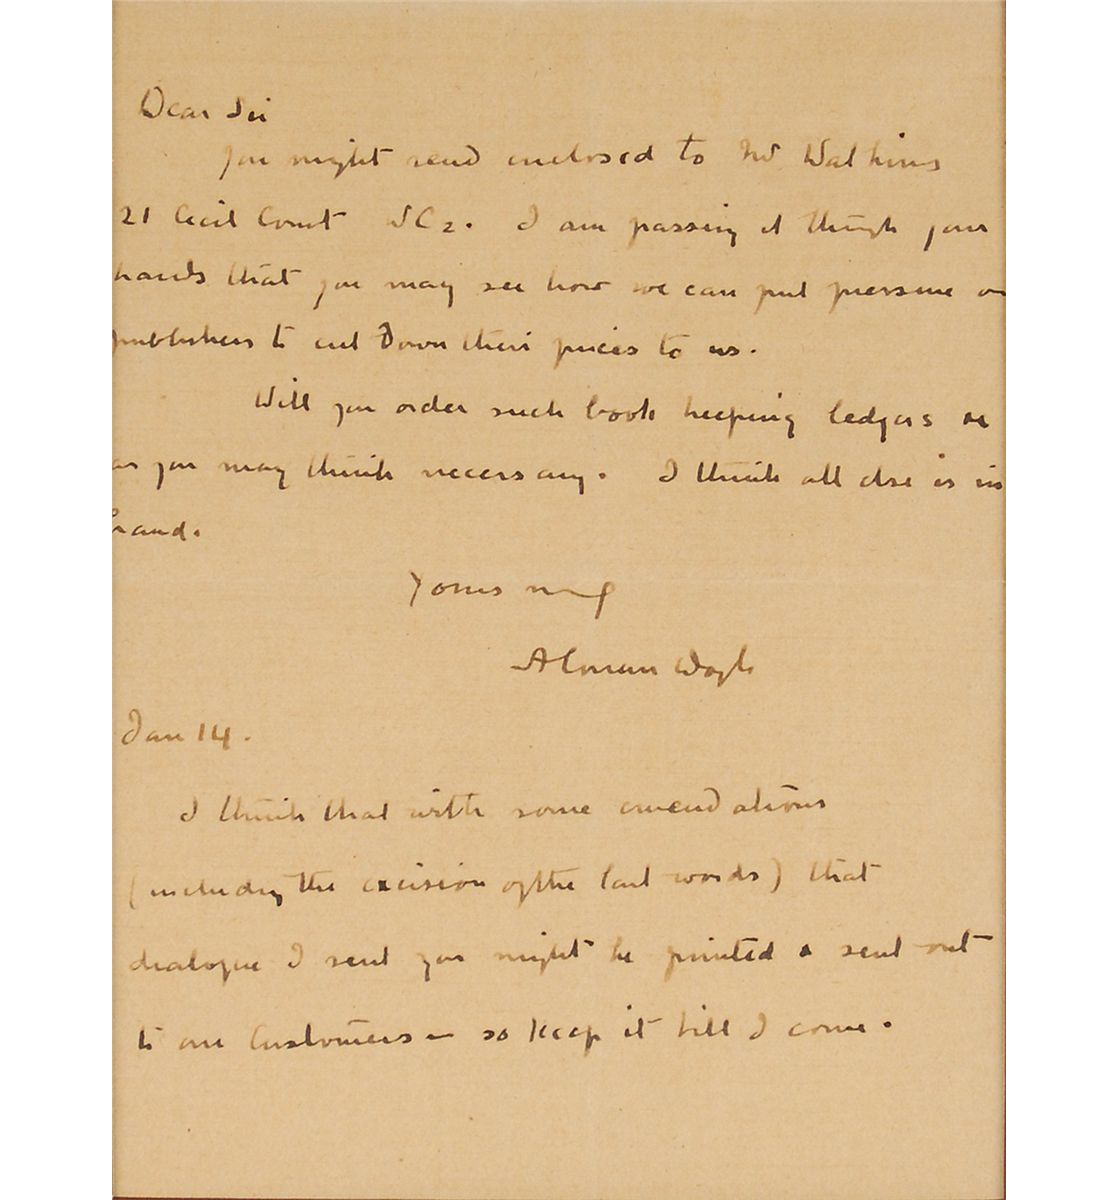 Dear Sir
you might send enclosed to Mr Watkins
21 Cecil Court WC2. I am passing it through your
hands that you may see how we can put pressure on
publishers to cut down their prices to us.
Will you order such book keeping ledgers
as you may think necessary. I think all else is in
hand.
Yours
A Conan Doyle
Jan 14.
I think that with some emendations
(including the excision of the last words) that
dialogue I sent you might be printed & sent out
to our customers – so keep it till I come.